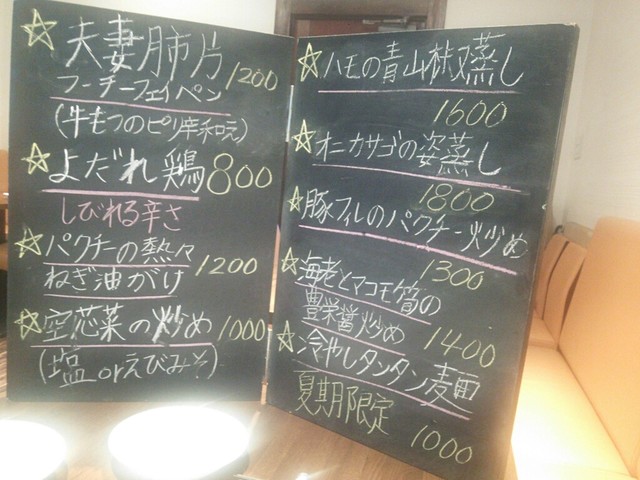 ☆夫妻肺片
フーチーフェイペン 1200
(牛もつのピリ辛和え)
☆よだれ鶏 800
しびれる辛さ
☆パクチーの熱々
ねぎ油がけ 1200
☆空芯菜の炒め 1000
(塩orえびみそ)
☆ハモの青山椒蒸し
1600
☆オニカサゴの姿蒸し
1800
☆豚フィレのパクチー炒め
1300
☆海老とマコモ筍の
豊栄醤炒め 1400
☆冷やしタンタン麺
夏期限定 1000